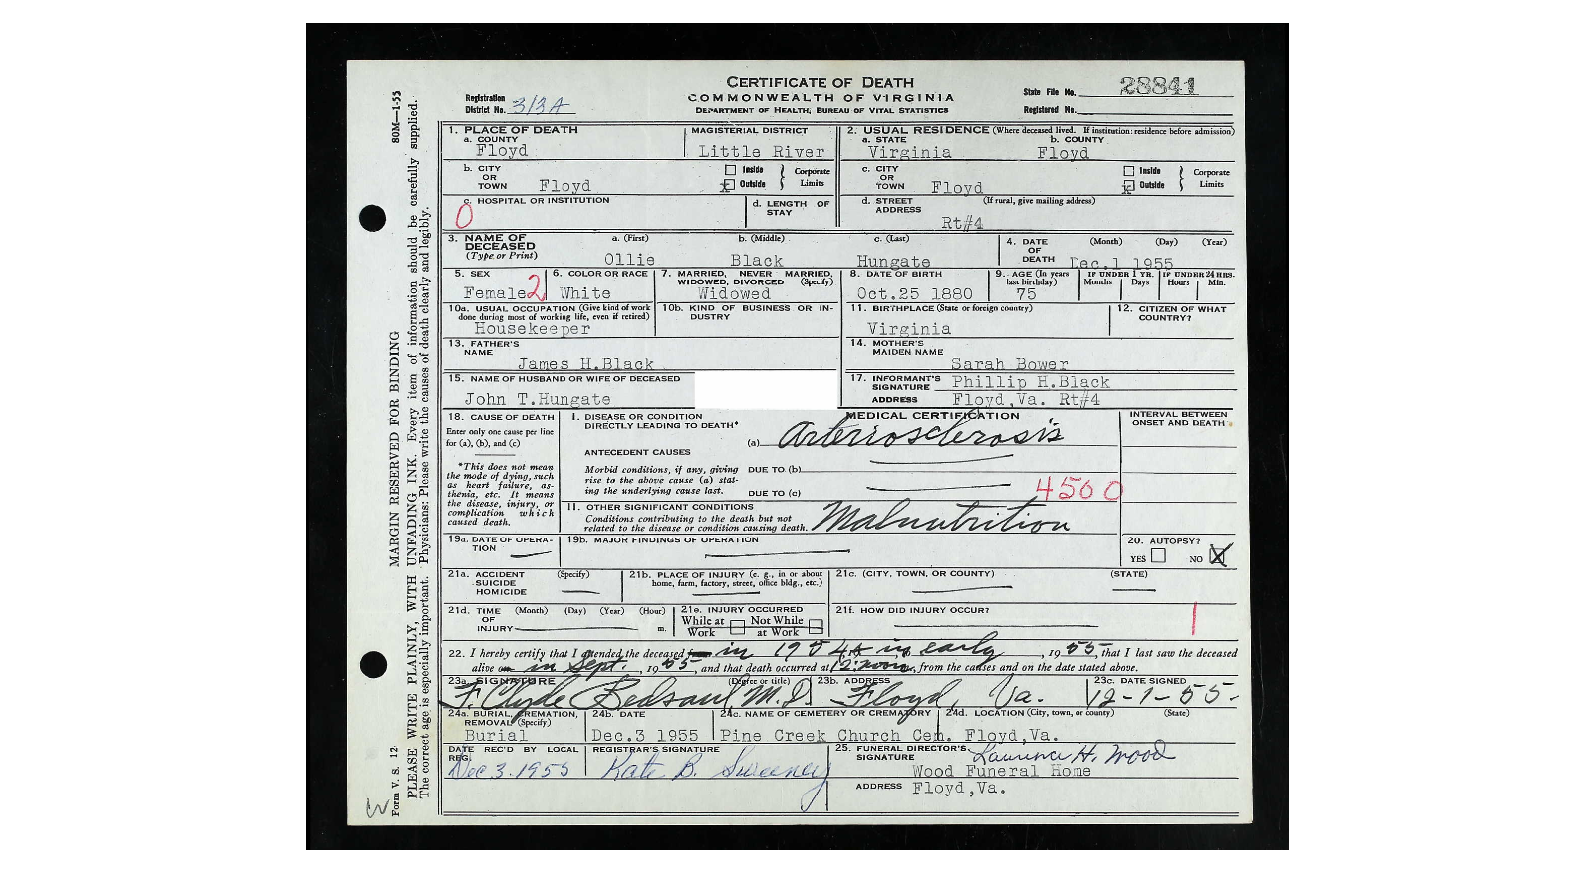 CERTIFICATE OF DEATH
COMMONWEALTH OF VIRGINIA
DEPARTMENT OF HEALTH, BUREAU OF VITAL STATISTICS
Registration District No. 313A
State File No. 28841
Registered No.
1. PLACE OF DEATH
a. COUNTY Floyd
MAGISTERIAL DISTRICT Little River
2. USUAL RESIDENCE (Where deceased lived. If institution: residence before admission)
a. STATE Virginia b. COUNTY Floyd
b. CITY OR TOWN Floyd Inside Outside Corporate Limits
c. CITY OR TOWN Floyd Inside Outside Corporate Limits
c. HOSPITAL OR INSTITUTION 0
d. LENGTH OF STAY
d. STREET ADDRESS (If rural, give mailing address) Rt#4
3. NAME OF DECEASED (Type or Print)
a. (First) Ollie b. (Middle) Black c. (Last) Hungate
4. DATE OF DEATH (Month) (Day) (Year) Dec.1 1955
5. SEX Female 2
6. COLOR OR RACE White
7. MARRIED, NEVER MARRIED, WIDOWED, DIVORCED (Specify) Widowed
8. DATE OF BIRTH Oct.25 1880
9. AGE (In years last birthday) 75
IF UNDER 1 YR. Months Days
IF UNDER 24 HRS. Hours Min.
10a. USUAL OCCUPATION (Give kind of work done during most of working life, even if retired) Housekeeper
10b. KIND OF BUSINESS OR INDUSTRY
11. BIRTHPLACE (State or foreign country) Virginia
12. CITIZEN OF WHAT COUNTRY?
13. FATHER'S NAME James H.Black
14. MOTHER'S MAIDEN NAME Sarah Bower
15. NAME OF HUSBAND OR WIFE OF DECEASED John T.Hungate
17. INFORMANT'S SIGNATURE Phillip H.Black
ADDRESS Floyd,Va. Rt#4
18. CAUSE OF DEATH
Enter only one cause per line for (a), (b), and (c)
*This does not mean the mode of dying, such as heart failure, asthenia, etc. It means the disease, injury, or complication which caused death.
MEDICAL CERTIFICATION
INTERVAL BETWEEN ONSET AND DEATH
I. DISEASE OR CONDITION DIRECTLY LEADING TO DEATH* (a) Arteriosclerosis
ANTECEDENT CAUSES
Morbid conditions, if any, giving rise to the above cause (a) stating the underlying cause last.
DUE TO (b)
DUE TO (c)
4500
II. OTHER SIGNIFICANT CONDITIONS
Conditions contributing to the death but not related to the disease or condition causing death. Malnutrition
19a. DATE OF OPERATION
19b. MAJOR FINDINGS OF OPERATION
20. AUTOPSY? YES NO X
21a. ACCIDENT SUICIDE HOMICIDE (Specify)
21b. PLACE OF INJURY (e. g., in or about home, farm, factory, street, office bldg., etc.)
21c. (CITY, TOWN, OR COUNTY) (STATE)
21d. TIME OF INJURY (Month) (Day) (Year) (Hour) m.
21e. INJURY OCCURRED While at Work Not While at Work
21f. HOW DID INJURY OCCUR?
22. I hereby certify that I attended the deceased in 1954 & in early, 1955, that I last saw the deceased
alive in Sept., 1955, and that death occurred at 12:noon, from the causes and on the date stated above.
23a. SIGNATURE (Degree or title) F. Clyde Bedsaul, M.D.
23b. ADDRESS Floyd, Va.
23c. DATE SIGNED 12-1-55-
24a. BURIAL, CREMATION, REMOVAL (Specify) Burial
24b. DATE Dec.3 1955
24c. NAME OF CEMETERY OR CREMATORY Pine Creek Church Cem.
24d. LOCATION (City, town, or county) (State) Floyd,Va.
DATE REC'D BY LOCAL REG. Dec 3. 1955
REGISTRAR'S SIGNATURE Kate B. Sweeney
25. FUNERAL DIRECTOR'S SIGNATURE Laurence H. Wood
Wood Funeral Home
ADDRESS Floyd,Va.
80M—1-55
MARGIN RESERVED FOR BINDING
Form V. S. 12
PLEASE WRITE PLAINLY, WITH UNFADING INK. Every item of information should be carefully supplied.
The correct age is especially important. Physicians: Please write the causes of death clearly and legibly.